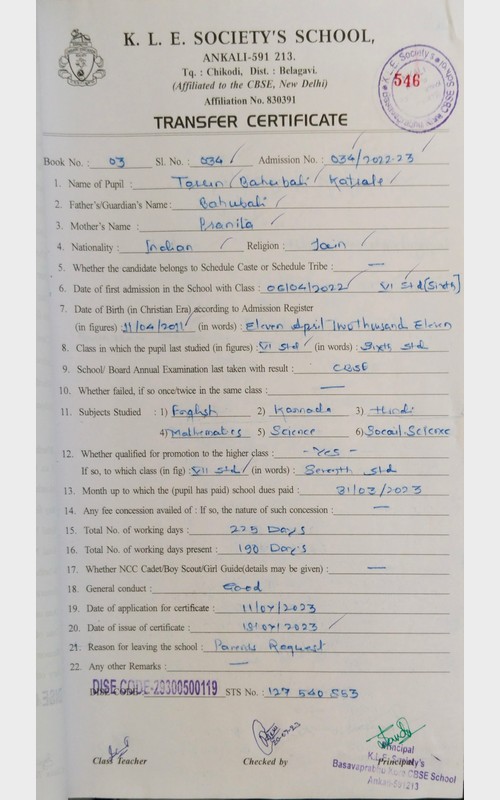 K. L. E. SOCIETY'S SCHOOL,
ANKALI-591 213.
Tq. : Chikodi, Dist. : Belagavi.
(Affiliated to the CBSE, New Delhi)
Affiliation No. 830391
546
TRANSFER CERTIFICATE
Book No. : 03 Sl. No. : 034 Admission No. : 034/2022-23
1. Name of Pupil : Bahubali
2. Father's/Guardian's Name : Bahubali
3. Mother's Name : Pranita
4. Nationality : Indian Religion : Jain
5. Whether the candidate belongs to Schedule Caste or Schedule Tribe : —
6. Date of first admission in the School with Class : 06/04/2022 VI Std [Sixth]
7. Date of Birth (in Christian Era) according to Admission Register
(in figures) 11/04/2011 (in words) : Eleven April Twothusand Eleven
8. Class in which the pupil last studied (in figures) : VI Std (in words) : Sixth Std
9. School/ Board Annual Examination last taken with result : CBSE
10. Whether failed, if so once/twice in the same class : —
11. Subjects Studied : 1) English 2) Kannada 3) Hindi
4) Mathematics 5) Science 6) Socail.Science
12. Whether qualified for promotion to the higher class : - Yes -
If so, to which class (in fig) : VII Std (in words) : Seventh Std
13. Month up to which the (pupil has paid) school dues paid : 31/03/2023
14. Any fee concession availed of : If so, the nature of such concession : —
15. Total No. of working days : 225 Days
16. Total No. of working days present : 190 Days
17. Whether NCC Cadet/Boy Scout/Girl Guide(details may be given) : —
18. General conduct : Good
19. Date of application for certificate : 11/07/2023
20. Date of issue of certificate : 18/07/2023
21. Reason for leaving the school : Parents Request
22. Any other Remarks : —
DISE CODE-29300500119 STS No. : 127 540 553
20-07-23
Class Teacher Checked by Principal
Principal
K.L.E. Society's
CBSE School
Ankali-591213